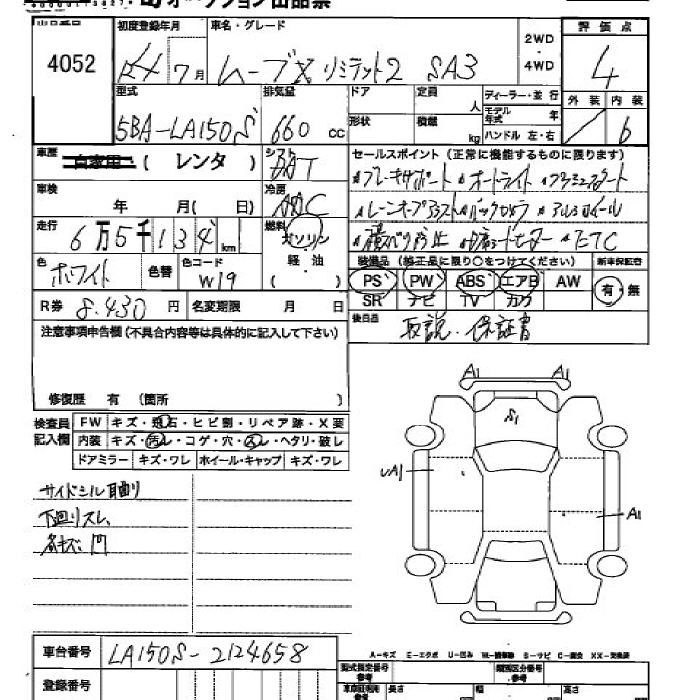 オークション出品票
出品番号 初度登録年月 車名・グレード 2WD ・ 4WD 評価点
4052 R4 7月 ムーブX リミテット2 SA3 4
型式 排気量 ドア 定員 人 ディーラー・並行 外装 内装
5BA-LA150S 660 cc 形状 積載 kg モデル年式 年 ハンドル 左・右 6
車歴 自家用・( レンタ ) シフト AT セールスポイント(正常に機能するものに限ります)
車検 年 月( 日) 冷房 AAC ブレーキサポート オートライト
走行 6万5千134km 燃料 ガソリン・軽・油 レーンキープアシスト バックカメラ アルミホイール
横スベリ防止 シートヒーター ETC
色 ホワイト 色替 色コード W19 装備品(純正品に限り○をつけてください) 新車保証書
PS PW ABS エアB AW 有・無
SR ナビ TV カワ
R券 8.430円 名変期限 月 日 後日品 取説・保証書
注意事項申告欄(不具合内容等は具体的に記入して下さい)
修復歴 有 (箇所 )
検査員記入欄 FW キズ・飛石・ヒビ割・リペア跡・X要
内装 キズ・汚レ・コゲ・穴・スレ・ヘタリ・破レ
ドアミラー キズ・ワレ ホイール・キャップ キズ・ワレ
A1 A1
S1
UA1
A1
サイドシル曲り
下廻りスレ、
各キズ、凹
A-キズ E-エクボ U-凹み W-補修跡 S-サビ C-腐食 XX-交換済
車台番号 LA150S-2124658 型式指定番号 参考 類別区分番号 参考
登録番号 長さ 幅 高さ